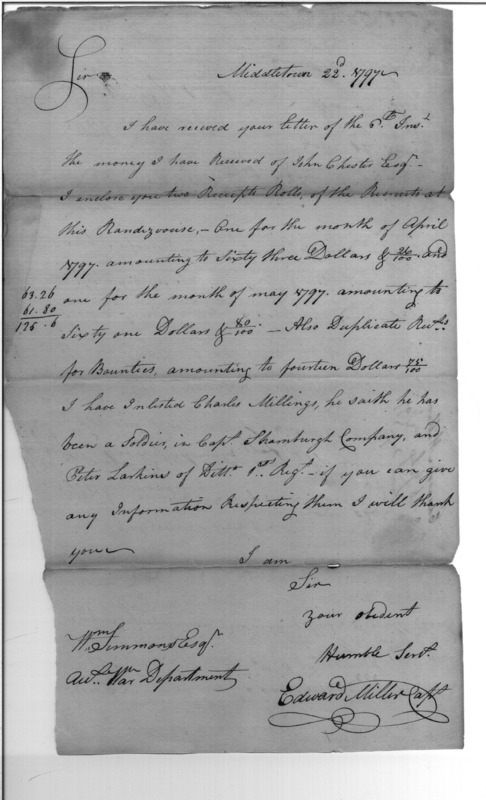 Sir
Middletown 22d. 1797
I have recived your letter of the 6th Inst.
the money I have Received of John Chester Esqr.
I enclose you two Receipts Rolls, of the Recruits at
this Randizvouse, - One for the month of April
1797. amounting to Sixty three Dollars & 26/100. and
one for the month of may 1797. amounting to
Sixty one Dollars & 80/100. - Also Duplicate Recpts
for Bounties, amounting to fourteen Dollars 75/100
I have Inlisted Charles Millings, he saith he has
been a Soldier, in Capt. Shamburgh Company, and
Peter Larkins of Ditto 1st. Regt. - if you can give
any Information Respecting them I will thank
you
63.26
61.80
125.6
I am
Sir
your obedient
Humble Servt.
Edward Miller Capt
Wm Simmons Esqr.
Acct. War Department